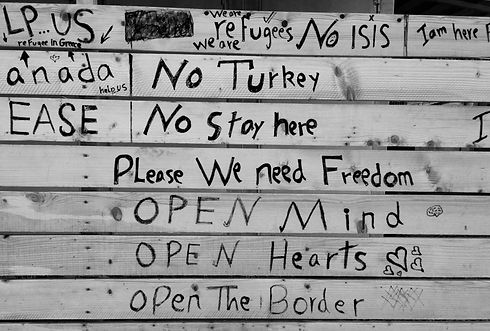 LP...US
refugee In Greece
we are
refugees
we are
No ISIS
I am here F
anada
help us
No Turkey
EASE
No Stay here
I
PLease We need Freedom
OPEN Mind
OPEN Hearts
OPen The Border